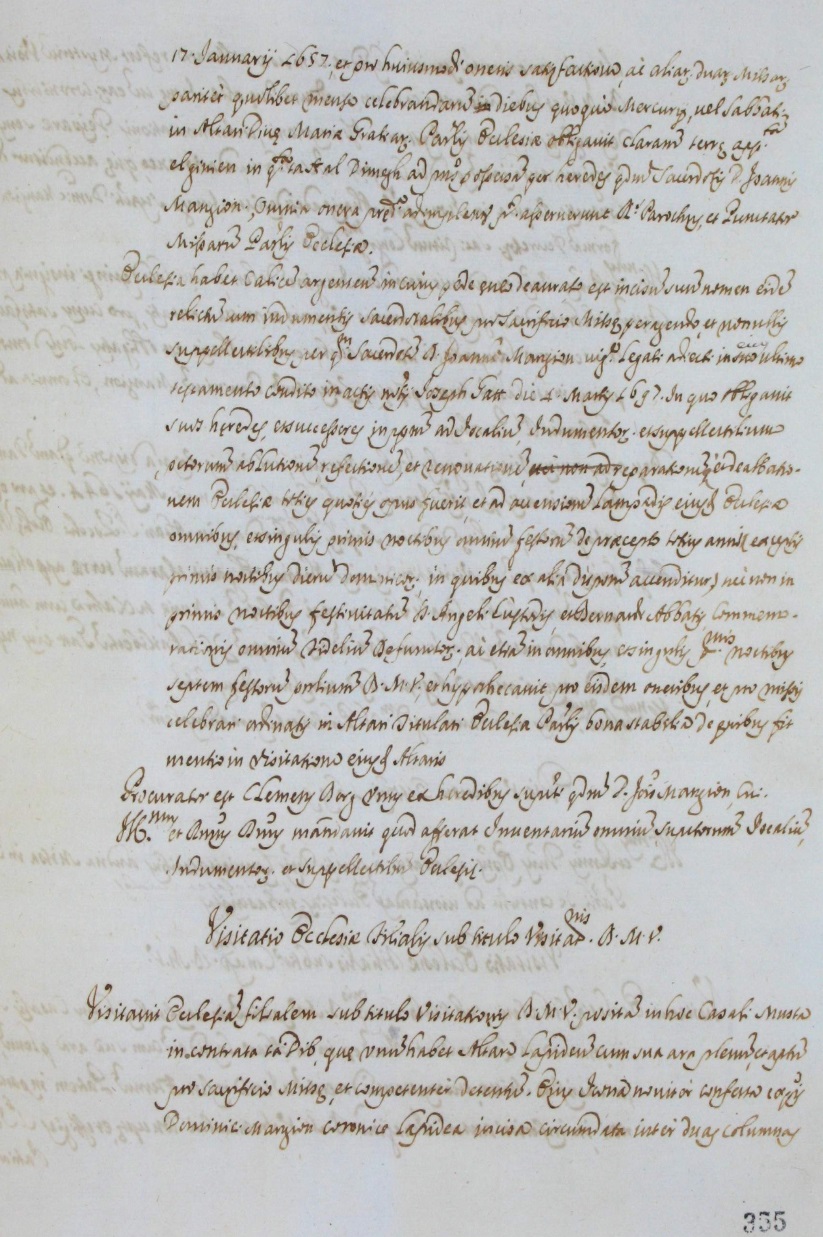 17. Januarij 1657. et pro huiusmodi oneris satisfactione, ac aliar. duar. Missar.
pariter quolibet mense celebrandarū in diebus quoque Mercurij, uel Sabbati
in Altari Divę Mariæ Gratiar. Parlis Ecclesiæ obligavit clausurā terrę
in ta Hal Dimegh ad pns possessā per heredes qdm Sacerdotis D. Joannis
Mangion. Omnia onera adimpleri asseruerunt Rs Parochus, et Punctator
Missarū Parlis Ecclesiæ.
Ecclesia habet Calicē argenteū in cuius pede quoque deaurato est incisū suū nomen eidē
relictū cum indumentis sacerdotalibus pro Sacrificio Missę peragendo, et nonnullis
suppellectilibus per qm Sacerdotē D. Joannē Mangion vig. legati adiecti in suo ultimo
testamento condito in actis Nrij Joseph Gatt die 4. Martij 1697. In quo obligavit
suos heredes, et successores in ppm ad Jocaliū, Indumentor. et suppellectiliū
pctorum ablutionē, refectionē, et renovationē, nec non ad reparationē, dealbatio-
nem Ecclesiæ toties quoties opus fuerit, et ad accensionē lampadis eiusd Ecclesiæ
omnibus, et singulis primis noctibus omniū festorū de præcepto totius anni (exceptis
primis noctibus dierū dominicor. in quibus ex alia dispone accenditur) nec non in
primis noctibus festivitatū S. Angeli Custodis et Bernardi Abbatis Commemo-
rationis omniū Fidelium Defunctor. ac etiā in omnibus, et singulis pmis noctibus
septem festorū B. M. V., et hypothecavit pro eisdem oneribus, et pro missis
celebrari ordinatis in Altari Titulari Ecclesiæ Parlis bona stabilia de quibus fit
mentio in Visitatione eiusd Altaris
Procurator est Clemens Borg unus ex heredibus qdm D. Jois Mangion,
Illmus et Rmus Dnus mandavit quod afferat Inventariū omniū Jocaliū,
Indumentor. et suppellectiliū Ecclesię.
Visitatio Ecclesiæ Filialis sub titulo Visitatnis. B. M. V.
Visitavit Ecclesiā filialem sub titulo Visitationis B. M. V. positā in hoc Casali Musta
in contrata ta Dib, quę unū habet Altare lapideū cum sua ara plenū, et aptū
pro sacrificio Missę, et competenter detentū. Eius Icona noviter confecta
Dominic. Mangion coronice lapidea incisa circumdata inter duas columnas
335